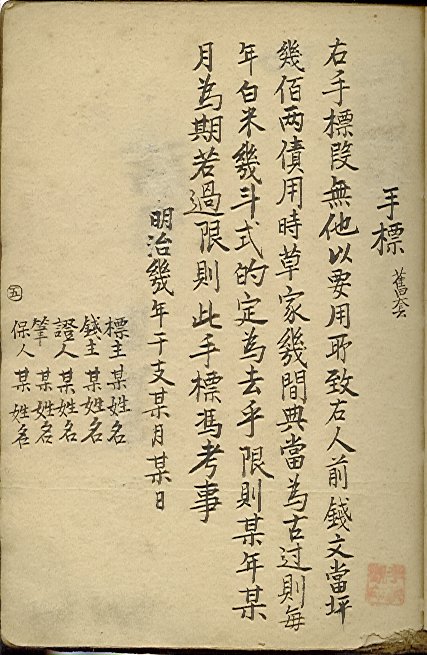 手標 舊套
右手標段無他以要用所致右人前錢文當坪
幾佰两債用時草家幾間典當為古过則每
年白米幾斗式的定為去乎限則某年某
月為期若過限則此手標馮考事
明治幾年干支某月某日
標主某姓名
錢主某姓名
證人某姓名
筆 某姓名
保人某姓名
五